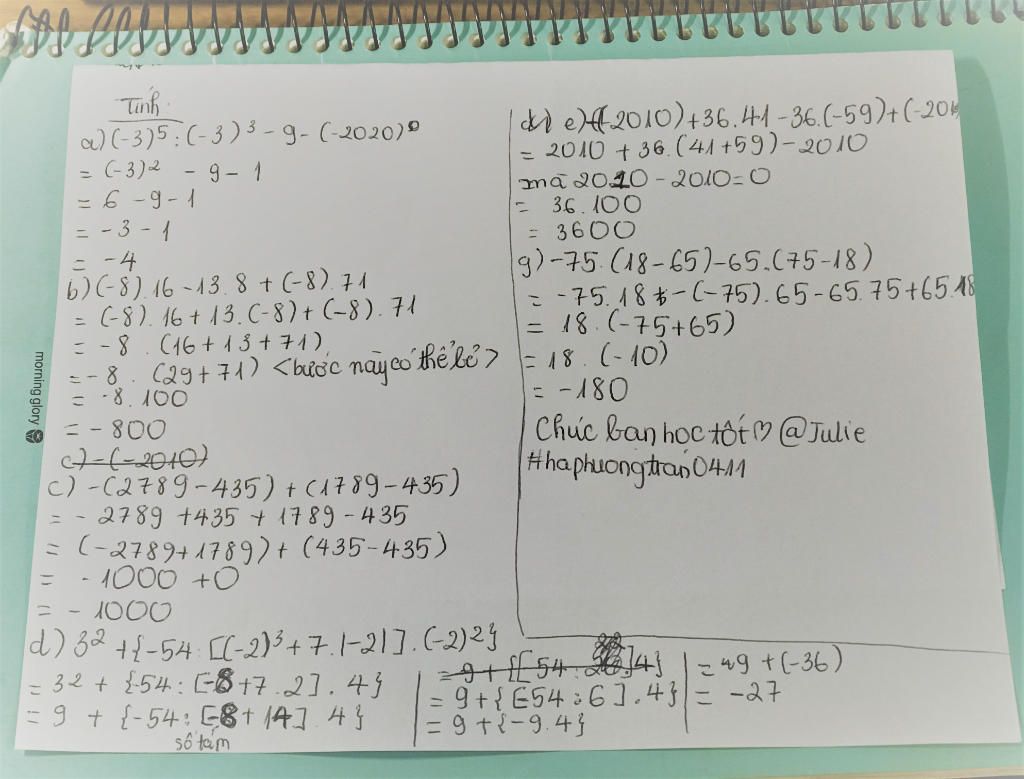 Tính:
a) (-3)⁵ : (-3)³ - 9 - (-2020)⁰
= (-3)² - 9 - 1
= 6 - 9 - 1
= -3 - 1
= -4
b) (-8).16 - 13.8 + (-8).71
= (-8).16 + 13.(-8) + (-8).71
= -8 . (16 + 13 + 71)
= -8 . (29 + 71) <bước này có thể bỏ>
= -8.100
= -800
c) -(-2010)
c) -(2789 - 435) + (1789 - 435)
= - 2789 + 435 + 1789 - 435
= (-2789 + 1789) + (435 - 435)
= - 1000 + 0
= - 1000
d) 3² + {-54 : [(-2)³ + 7.|-2|].(-2)²}
= 3² + {-54 : [-8 + 7.2].4}
= 9 + {-54 : [-8 + 14].4}
số tám
= 9 + {[-54 : .]4}
= 9 + {[-54 : 6].4}
= 9 + {-9.4}
= 9 + (-36)
= -27
e) (2010) + 36.41 - 36.(-59) + (-201
= 2010 + 36.(41 + 59) - 2010
mà 2010 - 2010 = 0
= 36.100
= 3600
g) -75.(18 - 65) - 65.(75 - 18)
= -75.18 - (-75).65 - 65.75 + 65.18
= 18.(-75 + 65)
= 18.(-10)
= -180
Chúc bạn học tốt♡ @Julie
#haphuongtran0411
morning glory